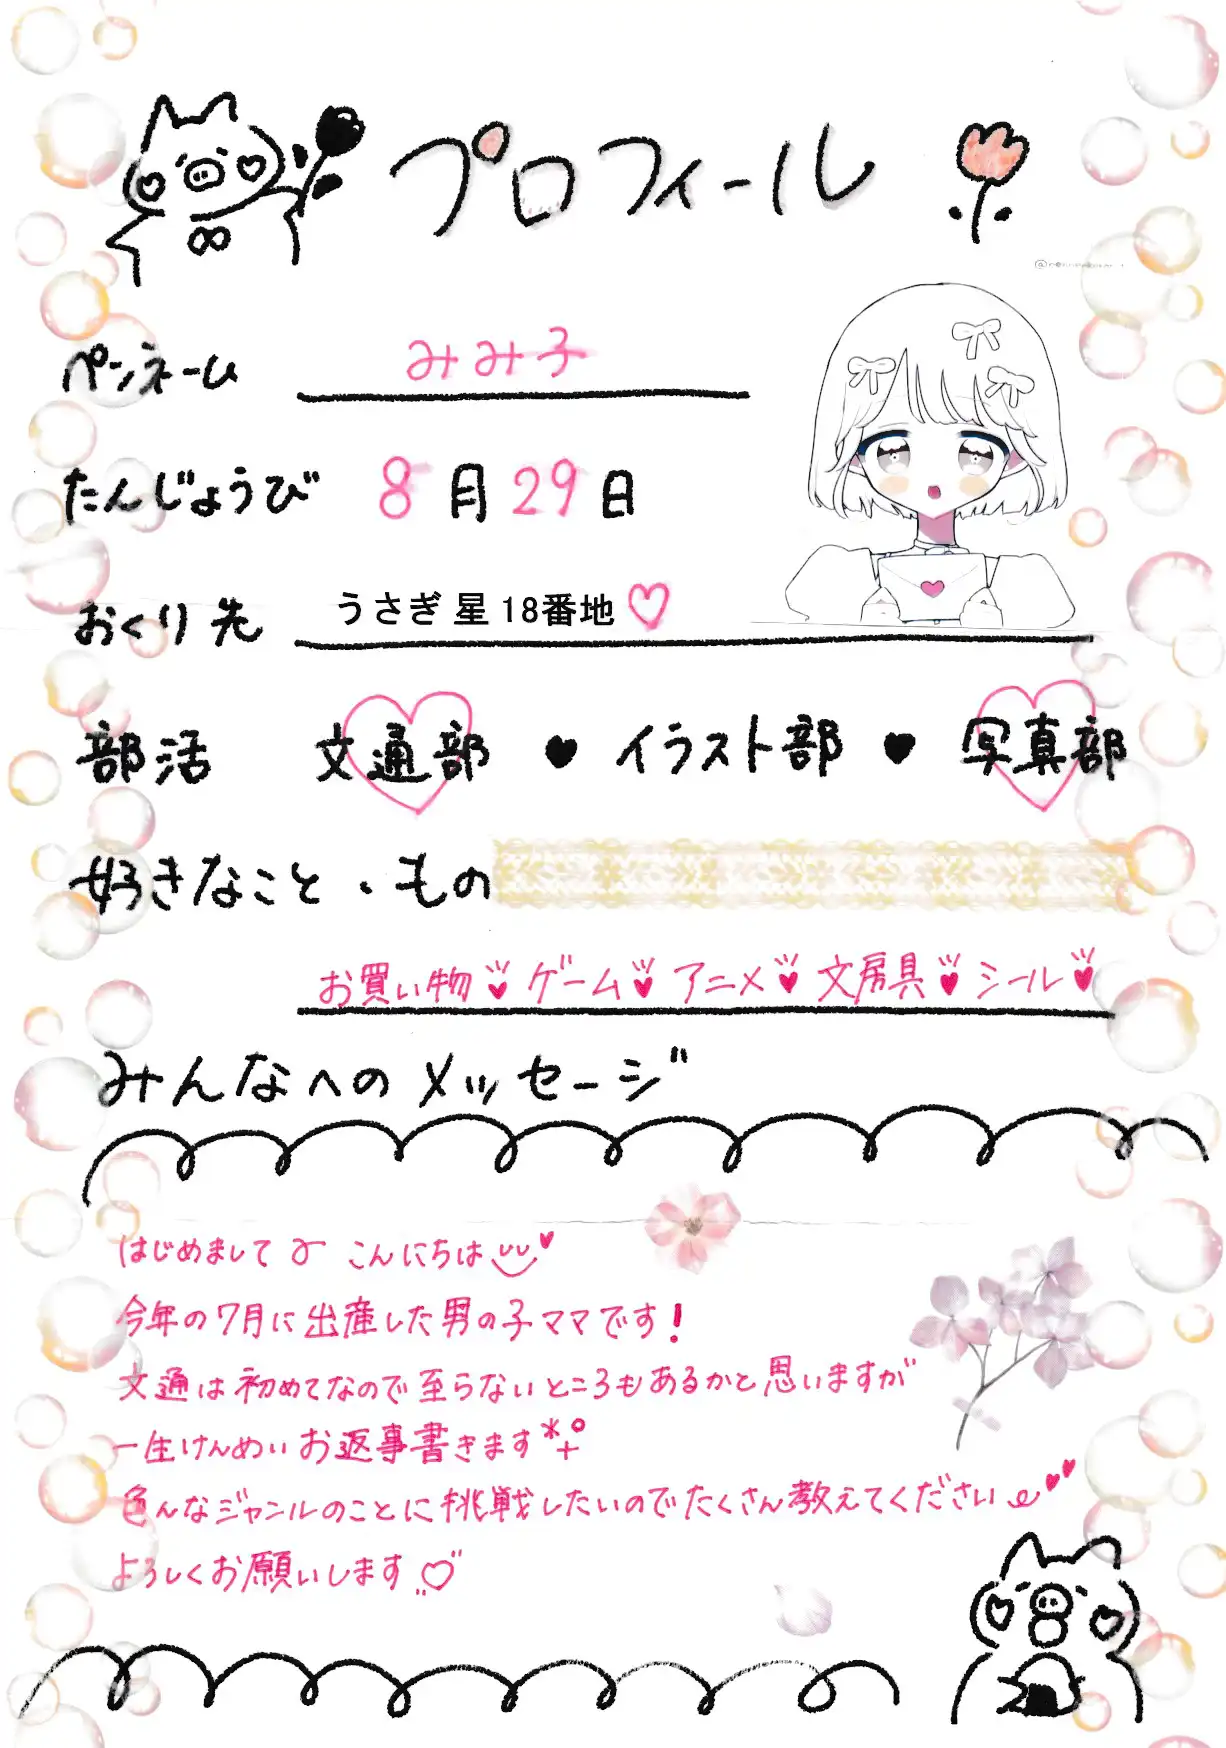 プロフィール
ペンネーム みみ子
たんじょうび 8月29日
おくり先 うさぎ星18番地♡
部活 文通部 ♥ イラスト部 ♥ 写真部
好きなこと・もの
お買い物♥ゲーム♥アニメ♥文房具♥シール♥
みんなへのメッセージ
はじめまして こんにちは
今年の7月に出産した男の子ママです!
文通は初めてなので至らないところもあるかと思いますが
一生けんめいお返事書きます
色んなジャンルのことに挑戦したいのでたくさん教えてください
よろしくお願いします♡